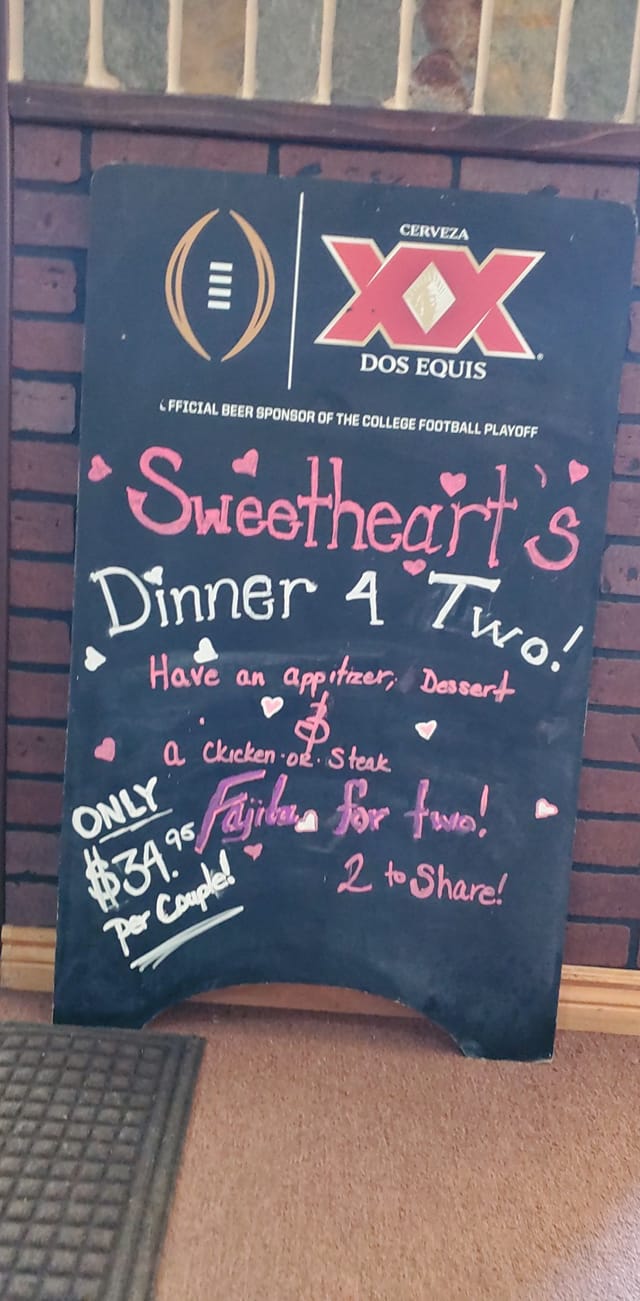 CERVEZA
XX
DOS EQUIS
FFICIAL BEER SPONSOR OF THE COLLEGE FOOTBALL PLAYOFF
Sweetheart's
Dinner 4 Two!
Have an appitizer, Dessert
&
a Chicken or Steak
Fajita for two!
2 to Share!
ONLY
$34.95
per Couple!